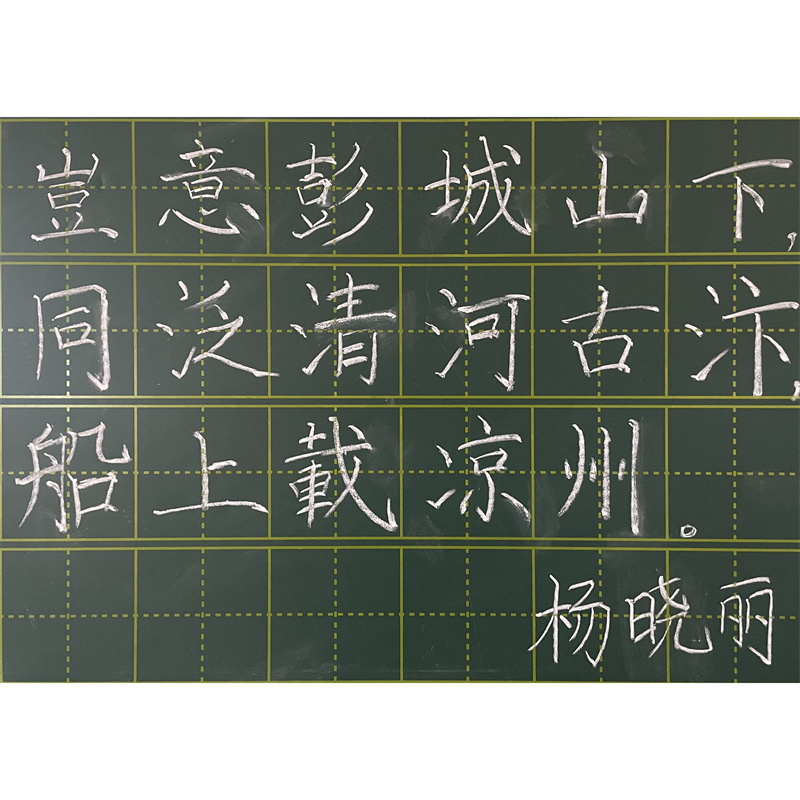 豈意彭城山下,
同泛清河古汴,
船上載凉州。
杨晓丽